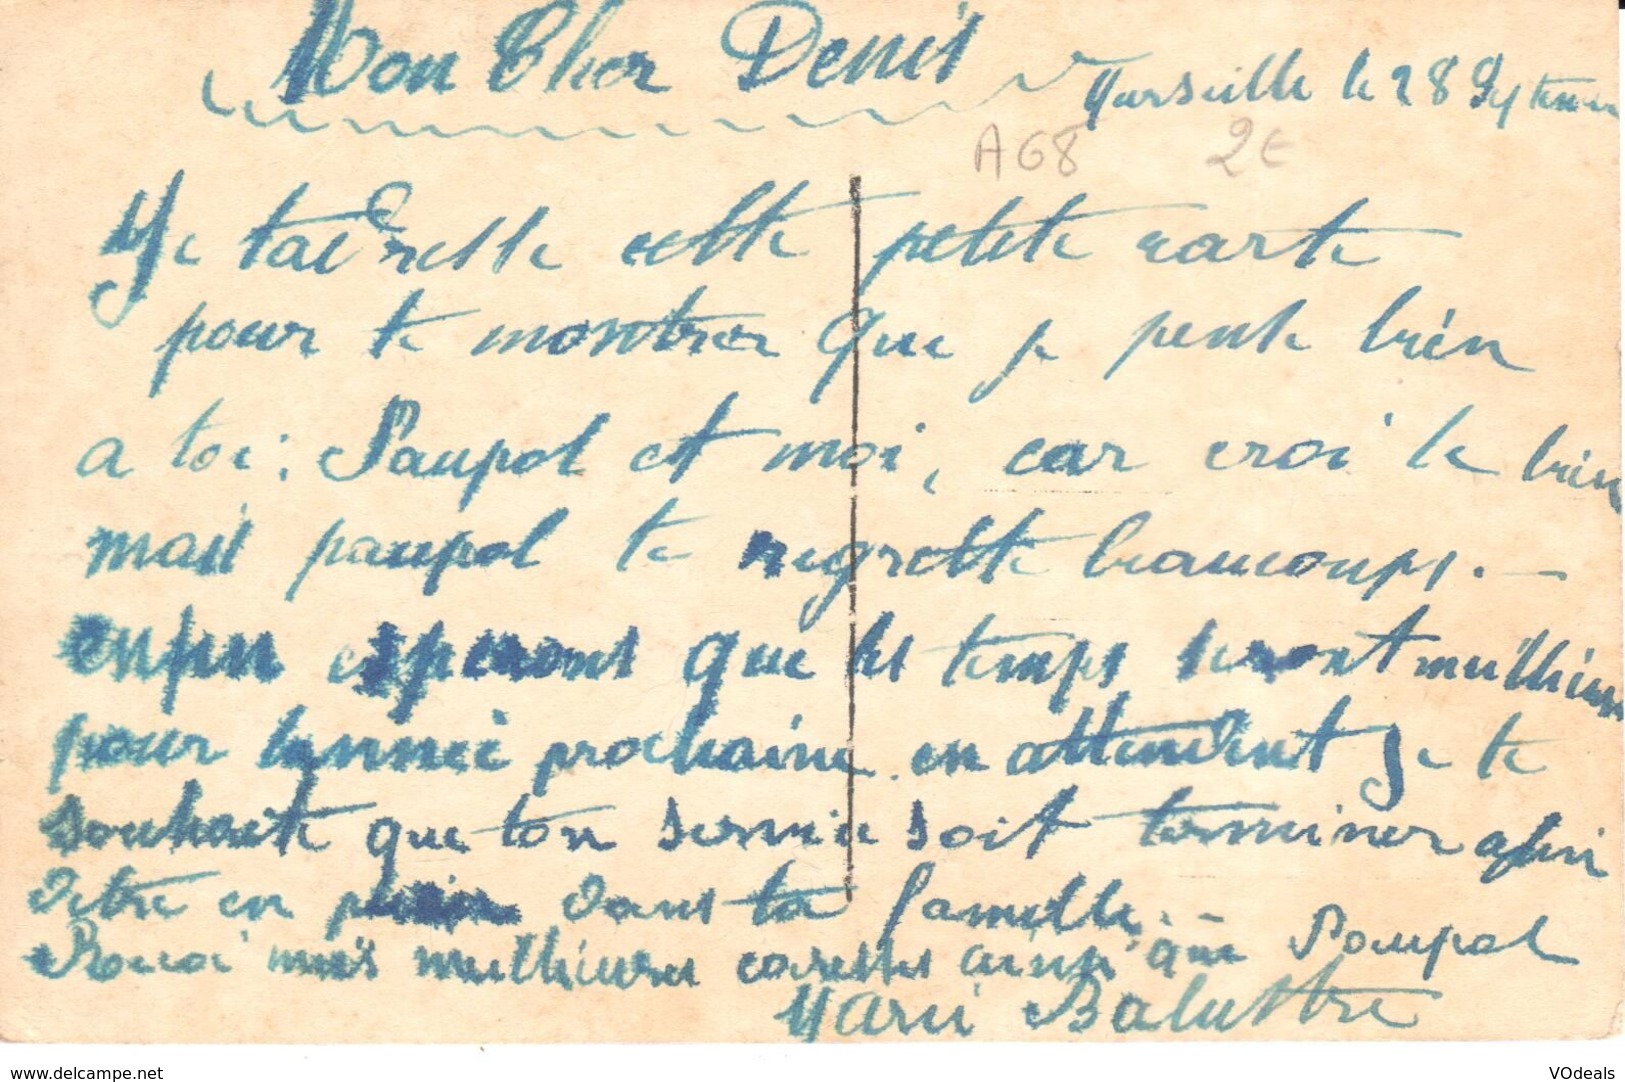 Mon Cher Denis
Marseille le 28 Septem
A68 2€
Je tadresse cette petite carte
pour te montrer que je pense bien
a toi; Paupol et moi, car croi le bien
mais paupol te regrette beaucoups. —
enfin esperons que les temps seront meillieurs
pour lannée prochaine. en attendent Je te
souhaite que ton service soit terminer afin
detre en plein dans ta famille. —
Recoi mes meillieures caresses ainsi que Paupol
Marie Balustre
www.delcampe.net
VOdeals